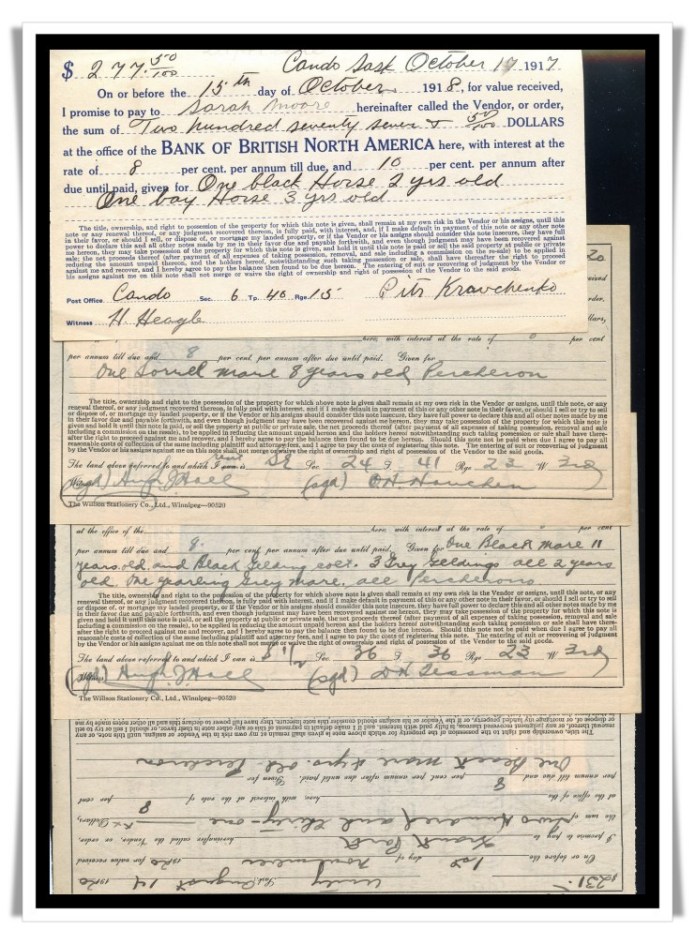 $ 277.50/100 Cando Sask October 17 1917
On or before the 15th day of October 1918, for value received,
I promise to pay to Sarah Moore hereinafter called the Vendor, or order,
the sum of Two hundred seventy seven & 50/100 DOLLARS
at the office of the BANK OF BRITISH NORTH AMERICA here, with interest at the
rate of 8 per cent. per annum till due, and 10 per cent. per annum after
due until paid, given for One black Horse 2 yrs old
One bay Horse 3 yrs old
The title, ownership, and right to possession of the property for which this note is given, shall remain at my own risk in the Vendor or his assigns, until this
note or any renewal thereof, or any judgment recovered thereon, is fully paid, with interest, and, if I make default in payment of this or any other note
in their favor, or should I sell, or dispose of, or mortgage my landed property, or if the Vendor or his assigns should consider this note insecure, they have full
power to declare this and all other notes made by me in their favor due and payable forthwith, and even though judgment may have been recovered against
me hereon, they may take possession of the property for which this note is given, and hold it until this note is paid or sell the said property at public or private
sale; the net proceeds thereof (after payment of all expenses of taking possession, removal, and sale including a commission on the re-sale) to be applied in
reducing the amount unpaid hereon, and the holders hereof, notwithstanding such taking possession or sale, shall have thereafter the right to proceed
against me and recover, and I hereby agree to pay the balance then found to be due hereon. The entering of suit or recovering of judgment by the Vendor or
his assigns against me on this note shall not merge or waive the right of ownership and right of possession of the Vendor to the said goods.
Post Office Cando Sec. 6 Tp. 40 Rge. 15 Pits Kravchenko
Witness H. Heagle
20
order,
here, with interest at the rate of per cent
per annum till due and 8 per cent per annum after due until paid. Given for
One Sorrell mare 8 years old Percheron
The title, ownership and right to the possession of the property for which above note is given shall remain at my own risk in the Vendor or his assigns, until this note, or any
renewal thereof, or any judgment recovered thereon, is fully paid with interest, and if I make default in payment of this or any other note in their favor, or should I sell or try to sell
or dispose of, or mortgage my landed property, or if the Vendor or his assigns should consider this note insecure, they have full power to declare this and all other notes made by me
in their favor due and payable forthwith, and even though judgment may have been recovered against me hereon, they may take possession of the property for which this note is
given and hold it until this note is paid, or sell the property at public or private sale, the net proceeds thereof (after payment of all expenses of taking possession, removal and sale
including a commission on the resale), to be applied in reducing the amount unpaid hereon and the holders hereof notwithstanding such taking possession or sale shall have there-
after the right to proceed against me and recover, and I hereby agree to pay the balance then found to be due hereon. Should this note not be paid when due I agree to pay all
reasonable costs of collection of the same including plaintiff and attorney fees, and I agree to pay the costs of registering this note. The entering of suit or recovering of judgment
by the Vendor or his assigns against me on this note shall not merge or waive the right of ownership and right of possession of the Vendor to the said goods.
The land above referred to and which I own is SE Sec. 24 T. 41 Rge 23 W 3rd
(sgd) Hugh J. Hall (sgd)
The Willson Stationery Co., Ltd., Winnipeg—90520
at the office of the here, with interest at the rate of per cent
per annum till due and 9. per cent per annum after due until paid. Given for One Black mare 11
years old, and Black Gelding colt. 3 Grey Geldings all 2 years
old. One yearling Grey mare, all Percherons
The title, ownership and right to the possession of the property for which above note is given shall remain at my own risk in the Vendor or his assigns, until this note, or any
renewal thereof, or any judgment recovered thereon, is fully paid with interest, and if I make default in payment of this or any other note in their favor, or should I sell or try to sell
or dispose of, or mortgage my landed property, or if the Vendor or his assigns should consider this note insecure, they have full power to declare this and all other notes made by me
in their favor due and payable forthwith, and even though judgment may have been recovered against me hereon, they may take possession of the property for which this note is
given and hold it until this note is paid, or sell the property at public or private sale, the net proceeds thereof (after payment of all expenses of taking possession, removal and sale
including a commission on the resale), to be applied in reducing the amount unpaid hereon and the holders hereof notwithstanding such taking possession or sale shall have there-
after the right to proceed against me and recover, and I hereby agree to pay the balance then found to be due hereon. Should this note not be paid when due I agree to pay all
reasonable costs of collection of the same including plaintiff and attorney fees, and I agree to pay the costs of registering this note. The entering of suit or recovering of judgment
by the Vendor or his assigns against me on this note shall not merge or waive the right of ownership and right of possession of the Vendor to the said goods.
The land above referred to and which I own is S 1/2 Sec 36 T. 36 Rge 23 W 3rd
(sgd) Hugh J. Hall (sgd) D.H. Tessman
The Willson Stationery Co., Ltd., Winnipeg—90520
$231.- Unity August 14 1920
On or before the 1st day of November 1920 for value received
I promise to pay to Frank hereinafter called the Vendor, or order,
the sum of Two Hundred and thirty-one Dollars,
at the office of the here, with interest at the rate of 8 per cent
per annum till due and 8 per cent per annum after due until paid. Given for
One Black mare 4 yrs. old. Percheron
The title, ownership and right to the possession of the property for which above note is given shall remain at my own risk in the Vendor or his assigns, until this note, or any
renewal thereof, or any judgment recovered thereon, is fully paid with interest, and if I make default in payment of this or any other note in their favor, or should I sell or try to sell
or dispose of, or mortgage my landed property, or if the Vendor or his assigns should consider this note insecure, they have full power to declare this and all other notes made by me